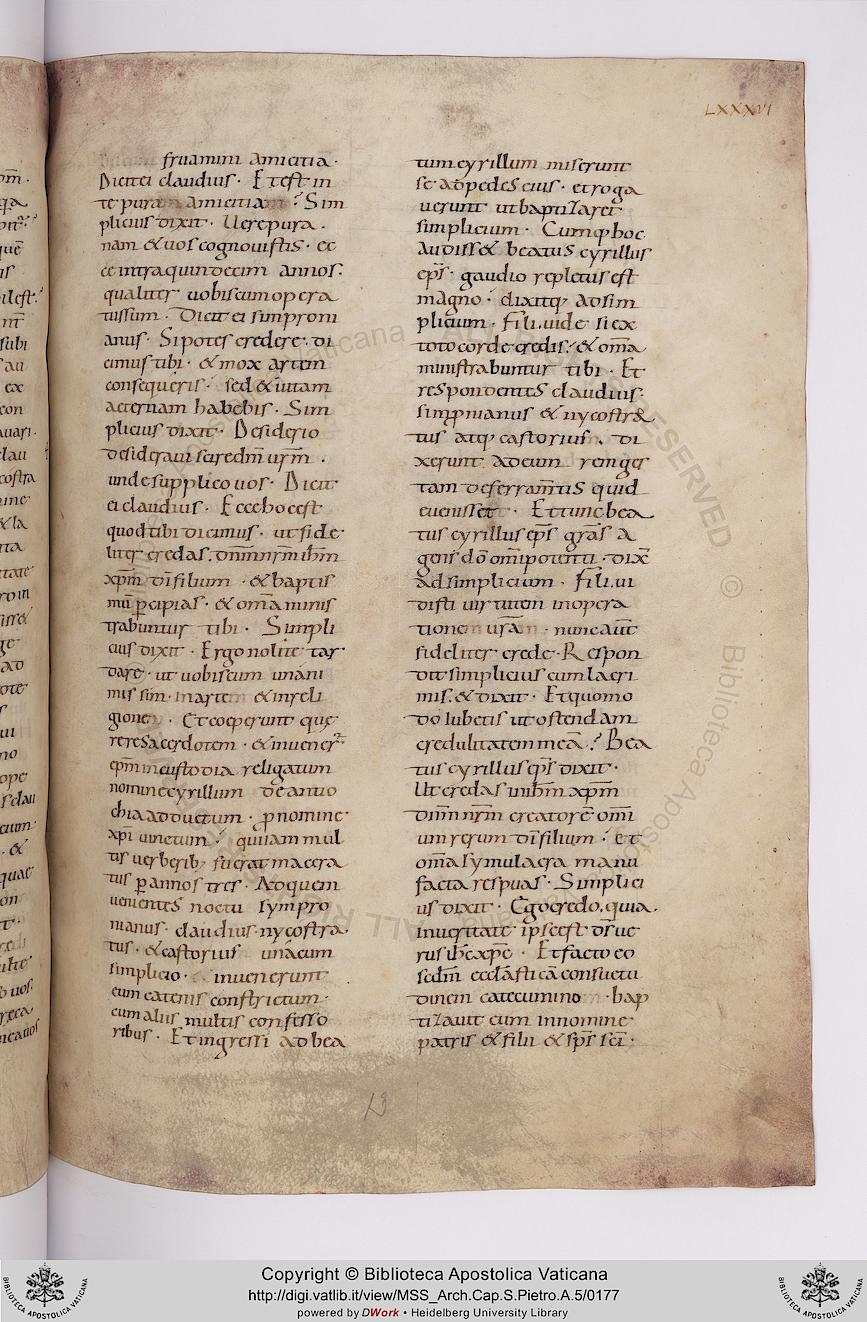 LXXXVI
fruamini amicitia·
Dicit ei claudius· Et est in
te pura amicitiam? Sim
plicius dixit· Uere pura·
nam & uos cognouistis· ec
ce intra quindecim annos·
qualiter uobiscum opera
tus sum· Dicit ei simproni
anus· Si potes credere· di
cimus tibi· & mox artem
consequeris· sed & uitam
aeternam habebis· Sim
plicius dixit· Desiderio
desideraui scire dm̄ urm̄·
unde supplico uos· Dicit
ei claudius· Ecce hoc est
quod tibi dicimus· ut fide
liter credas· dnm̄ nrm̄ ihm̄
xpm̄ dī filium· & baptis
mū percipias· & om̄a minis
trabuntur tibi· Simpli
cius dixit· Ergo nolite tar
dare· ut uobiscum unani
mis sim· in arte & in reli
gione· Et coeperunt quę
rere sacerdotem· & inuener̄
epm̄ in custodia religatum
nomine cyrillum de antio
chia adductum· p nomine
xpī uinctum· qui iam mul
tis uerberib; fuerat macera
tus p annos tres· Ad quem
uenientes noctu sympro
nianus· claudius· nycostra
tus· & castorius· una cum
simplicio· inuenerunt
eum catenis constrictum·
cum aliis multis confesso
ribus· Et ingressi ad bea
tum cyrillum miserunt
se ad pedes eius· et roga
uerunt ut baptizaret
simplicium· Cumq; hoc
audiss& beatus cyrillus
eps̄· gaudio repletus est
magno· dixitq; ad sim
plicium· Fili, uide si ex
toto corde credis· & om̄a
ministrabuntur tibi· Et
respondentes claudius·
simpnianus & nycostra
tus atq; castorius· di
xerunt ad eum renges
tam de ferram̄tis quid
euenisset· Et tunc bea
tus cyrillus eps̄ grās a
gens dō om̄ipotenti· dix̄
ad simplicium· Fili, ui
disti uirtutem in opera
tione urā· nunc aūt
fideliter crede· Respon
dit simplicius cum lacri
mis· & dixit· Et quomo
do iubetis ut ostendam
credulitatem meā? Bea
tus cyrillus eps̄ dixit·
Ut credas in ihm̄ xpm̄
dnm̄ nrm̄ creatorē om̄i
um rerum dī filium· et
om̄a symulacra manu
facta respuas· Simplici
us dixit· Ego credo, quia
in ueritate ipse est dr̄ ue
rus ihc̄ xpc̄· Et facto eo
scdm̄ ecclāsticā consuetu
dinem catecumino· bap
tizauit eum in nomine
patris & filii & spr̄ scī·
13
Copyright © Biblioteca Apostolica Vaticana
http://digi.vatlib.it/view/MSS_Arch.Cap.S.Pietro.A.5/0177
powered by DWork • Heidelberg University Library